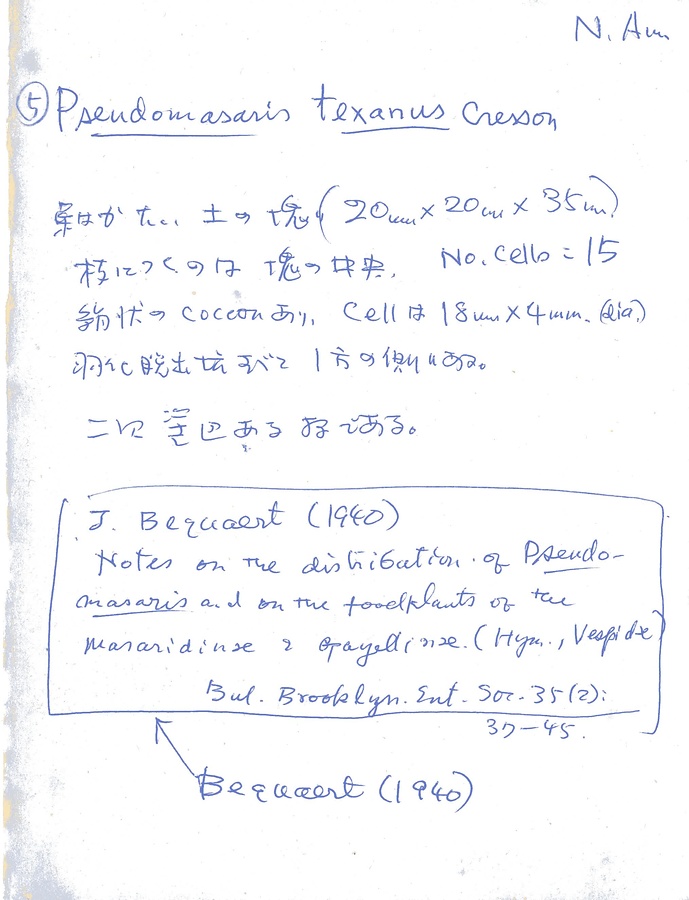 N. Am.
⑤ Pseudomasaris texanus Cresson
巣はかたい 土の塊 (20mm × 20mm × 35mm)
枝につくのは 塊の中央. No. Cells = 15
状の cocoon あり, Cell は 18mm × 4mm. (dia.)
羽化脱出坑すべて 1方の側にある。
ある である。
J. Bequaert (1940)
Notes on the distribution of Pseudo-
masaris and on the foodplants of the
Masaridinae & (Hym., Vespidae)
Bul. Brooklyn. Ent. Soc. 35(2):
37-45.
Bequaert (1940)